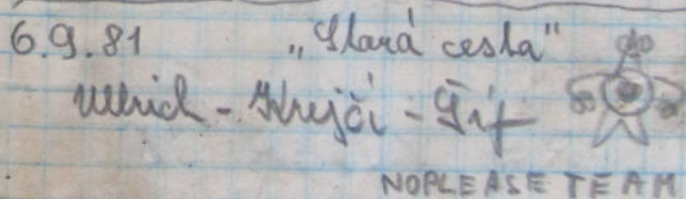 6.9.81 „Stará cesta"
Ullrich - Krejčí - Gif
NOPLEASE TEAM